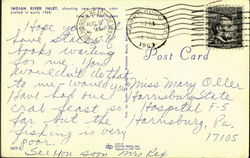 INDIAN RIVER INLET, showing new bridge com-
pleted in early 1965.
I Hope you
have plenty of
books waiting
for me. You
wouldn't do that
to me, would you?
Have had one
crab feast so
far but the
fishing is very
poor.
See you soon Mrs Rex
Post Card
Miss Mary Oller
Harrisburg State
Hospital F-5
Harrisburg, Pa.
17105